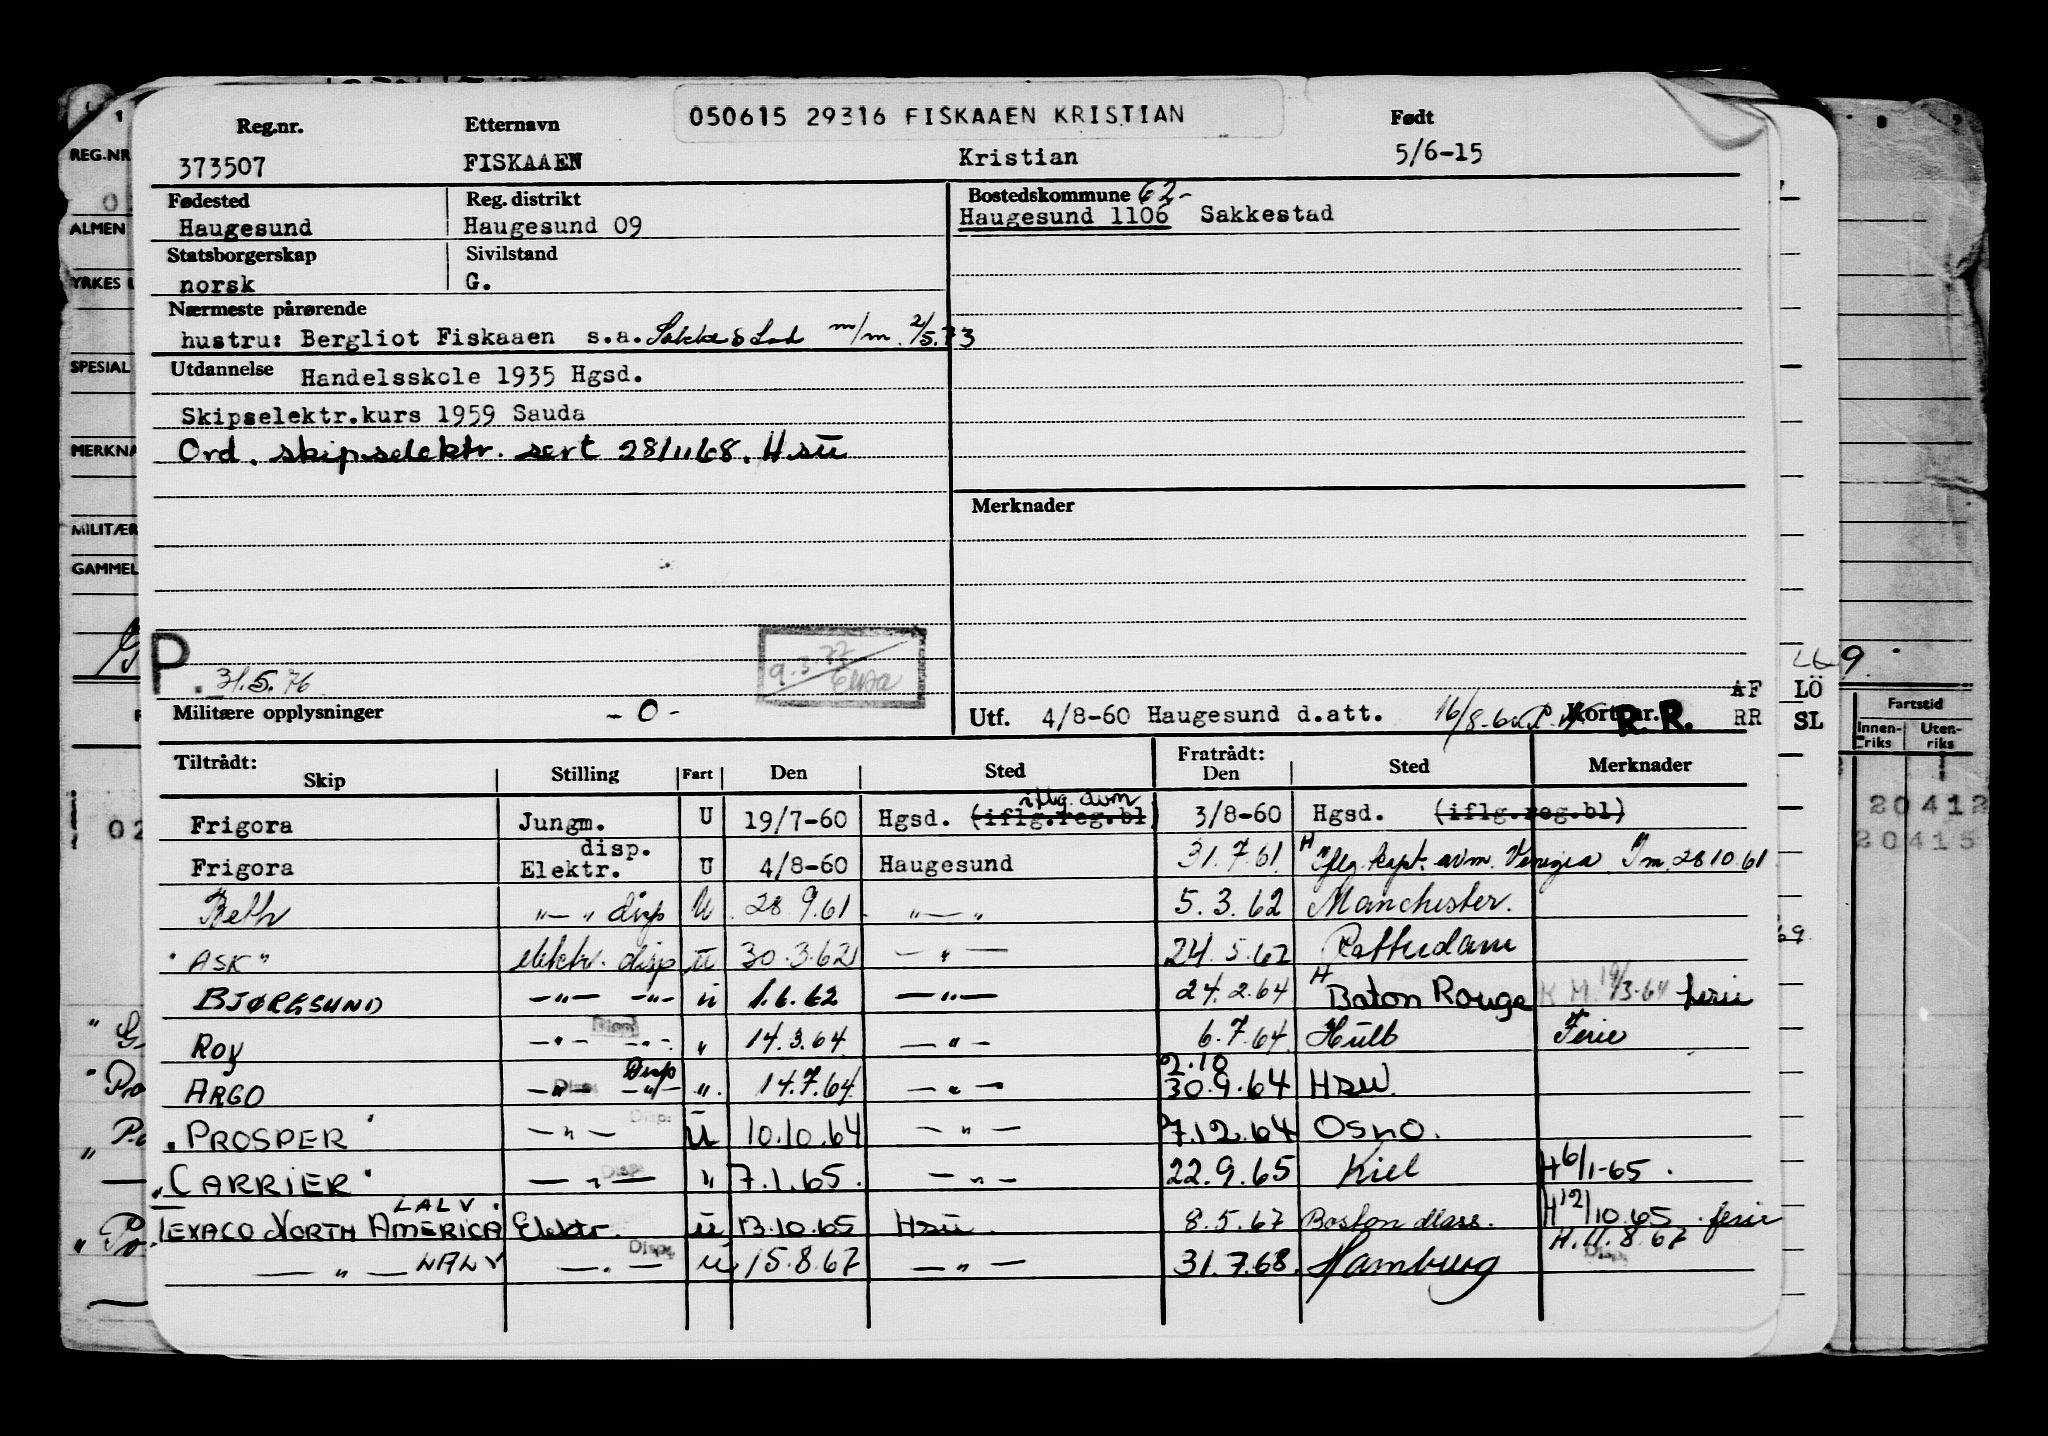 050615 29316 FISKAAEN KRISTIAN
Reg.nr. Etternavn Født
373507 FISKAAEN Kristian 5/6-15
Fødested Reg. distrikt Bostedskommune 62-
Haugesund Haugesund 09 Haugesund 1106 Sakkestad
Statsborgerskap Sivilstand
norsk G.
Nærmeste pårørende
hustru: Bergliot Fiskaaen s.a. m/m. 2/5.73
Utdannelse Handelsskole 1935 Hgsd.
Skipselektr.kurs 1959 Sauda
Ord. skipselektr. sert 28/11 68. Hsu
Merknader
P. 31.5.76
9.3.77
Militære opplysninger -0- Utf. 4/8-60 Haugesund d.att. Kort nr. R.R.
AF LÖ
RR SL
Tiltrådt: Skip Stilling Fart Den Sted Fratrådt: Den Sted Merknader
Frigora Jungm. U 19/7-60 Hgsd. (iflg.reg.bl) iflg. avm 3/8-60 Hgsd. (iflg.reg.bl)
Frigora disp. Elektr. U 4/8-60 Haugesund 31.7.61 H Iflg. kapt. avm. Venezia Im. 28 10 61
Beth -"- " disp U 28.9.61 -"- 5.3.62 Manchester.
"ASK" elektr. disp u 30.3.62 -"- 24.5.62 Rotterdam
BJØRGSUND -"- -"- u 1.6.62 -"- 24.2.64 H Baton Rouge K M. 19/3-64 ferie
Roy -"- -"- " 14.3.64 -"- 6.7.64 Hull Ferie
ARGO -"- -"- Disp ". 14.7.64 -"- 2.10 30.9.64 Hsu.
"PROSPER" -"- Disp: u 10.10.64 -"- 7.12.64 Oslo.
"CARRIER" -"- Disp: " 7.1.65. -"- 22.9.65 Kiel H 6/1-65.
TEXACO NORTH AMERICA LALV Elektr. u 13.10.65 Hsu. 8.5.67 Boston Mass. H 12/10.65. ferie
-"- LALV -"- Disp: u 15.8.67 -"- 31.7.68. Hamburg H. 11.8.67 Disp:
REG.NR
ALMEN
YRKES
SPESIAL
MERKNA
MILITÆR
GAMMEL
Fartstid
Innen-riks Uten-riks
20412
20415